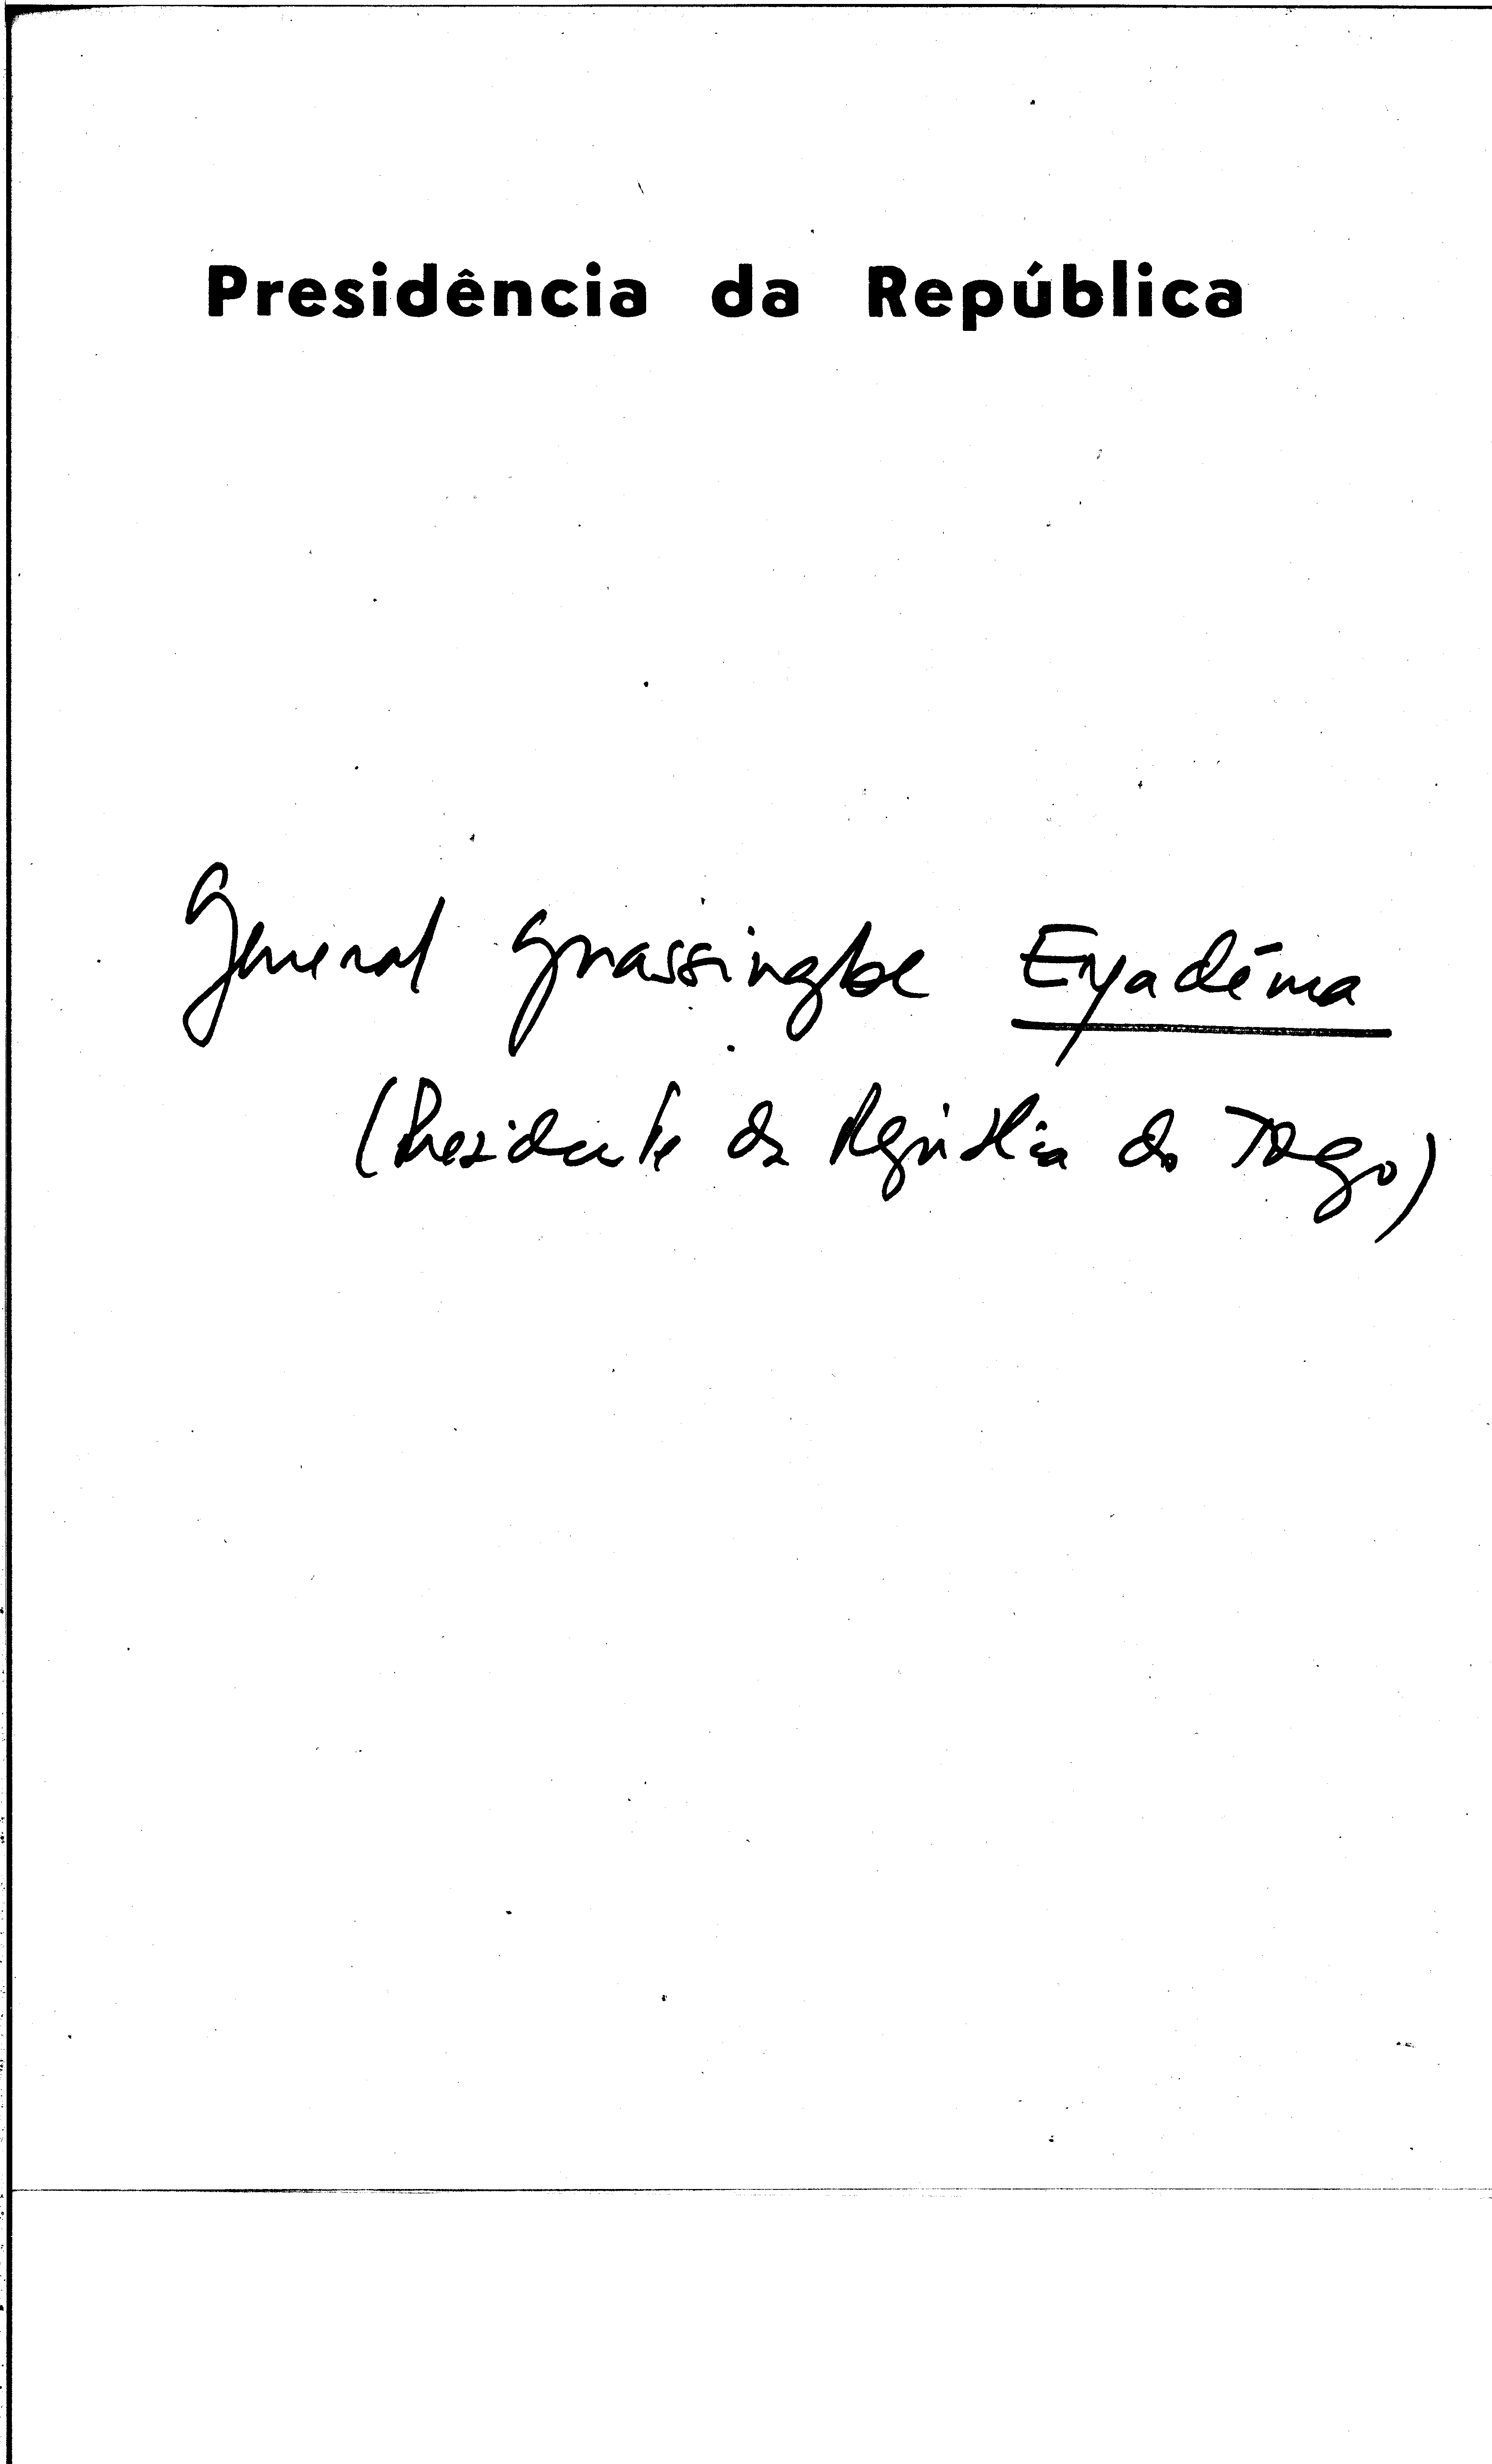 Presidência da República
General Gnassingbe Eyadéma
(Presidente da República do Togo)